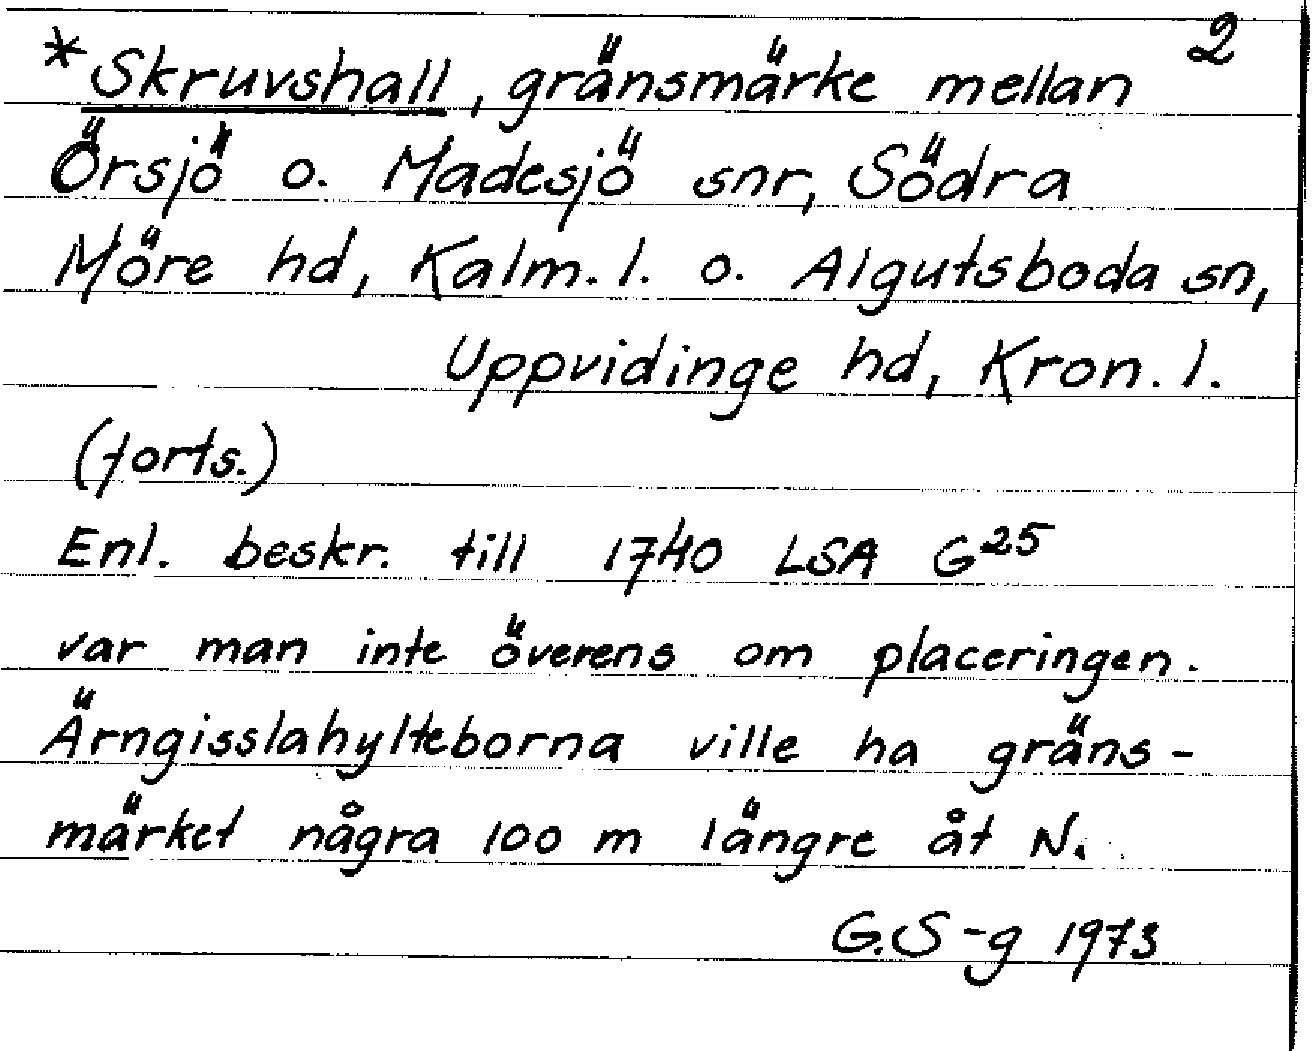 2
*Skruvshall, gränsmärke mellan
Örsjö o. Madesjö snr, Södra
Möre hd, Kalm. l. o. Algutsboda sn,
Uppvidinge hd, Kron. l.
(forts.)
Enl. beskr. till 1740 LSA G25
var man inte överens om placeringen.
Ärngisslahylteborna ville ha gräns-
märket några 100 m längre åt N.
G.S-g 1973